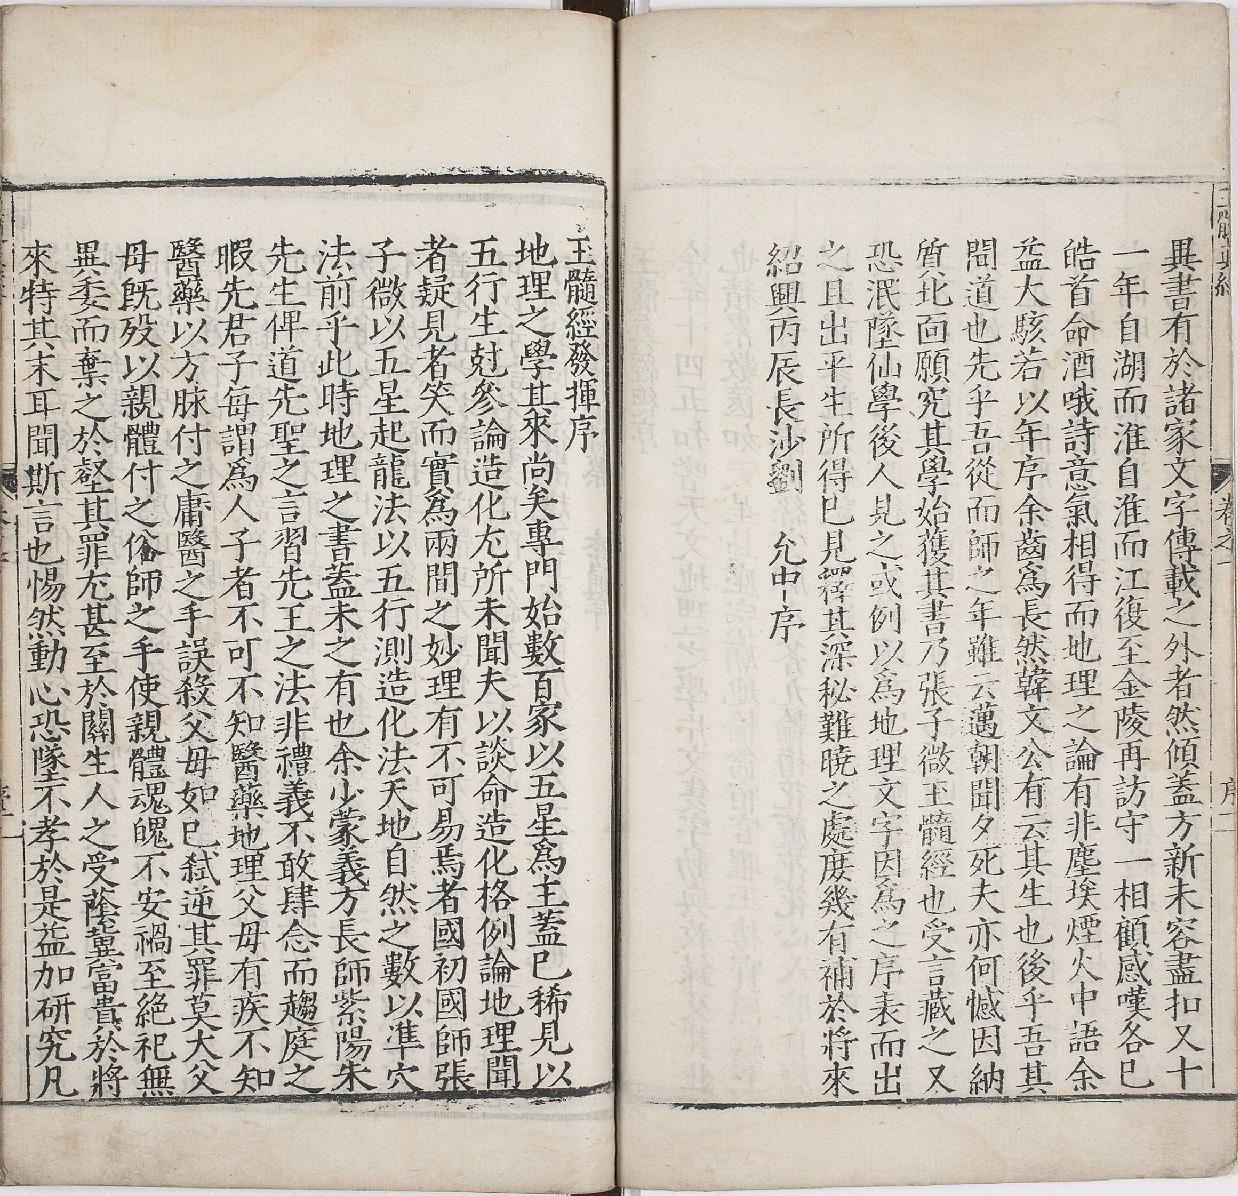 異書有於諸家文字傳載之外者然傾蓋方新未容盡扣又十
一年自湖而淮自淮而江復至金陵再訪守一相顧感嘆各已
皓首命酒哦詩意氣相得而地理之論有非塵埃煙火中語余
益大駭若以年序余齒爲長然韓文公有云其生也後乎吾其
聞道也先乎吾從而師之年雖云邁朝聞夕死夫亦何憾因納
質北面願究其學始獲其書乃張子微玉髓經也受言藏之又
恐泯墜仙學後人見之或例以爲地理文字因爲之序表而出
之且出平生所得已見釋其深秘難曉之處庶幾有補於將來
紹興丙辰長沙劉 允中序
卷之一
序二
玉髓經發揮序
地理之學其來尚矣專門始數百家以五星爲主蓋已稀見以
五行生尅參論造化尤所未聞夫以談命造化格例論地理聞
者疑見者笑而實爲兩間之妙理有不可易焉者國初國師張
子微以五星起龍法以五行測造化法天地自然之數以準穴
法前乎此時地理之書蓋未之有也余少蒙義方長師紫陽朱
先生俾道先聖之言習先王之法非禮義不敢肆念而趨庭之
暇先君子每謂爲人子者不可不知醫藥地理父母有疾不知
醫藥以方脉付之庸醫之手誤殺父母如已弑逆其罪莫大父
母旣歿以親體付之俗師之手使親體魂魄不安禍至絶祀無
異委而棄之於壑其罪尤甚至於關生人之受蔭冀富貴於將
來特其末耳聞斯言也惕然動心恐墜不孝於是益加研究凡